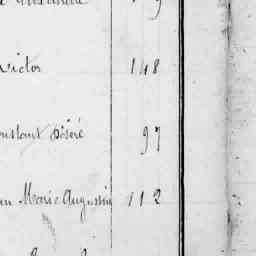 victor 148
onstant Désiré 97
an Marie Augustin 112